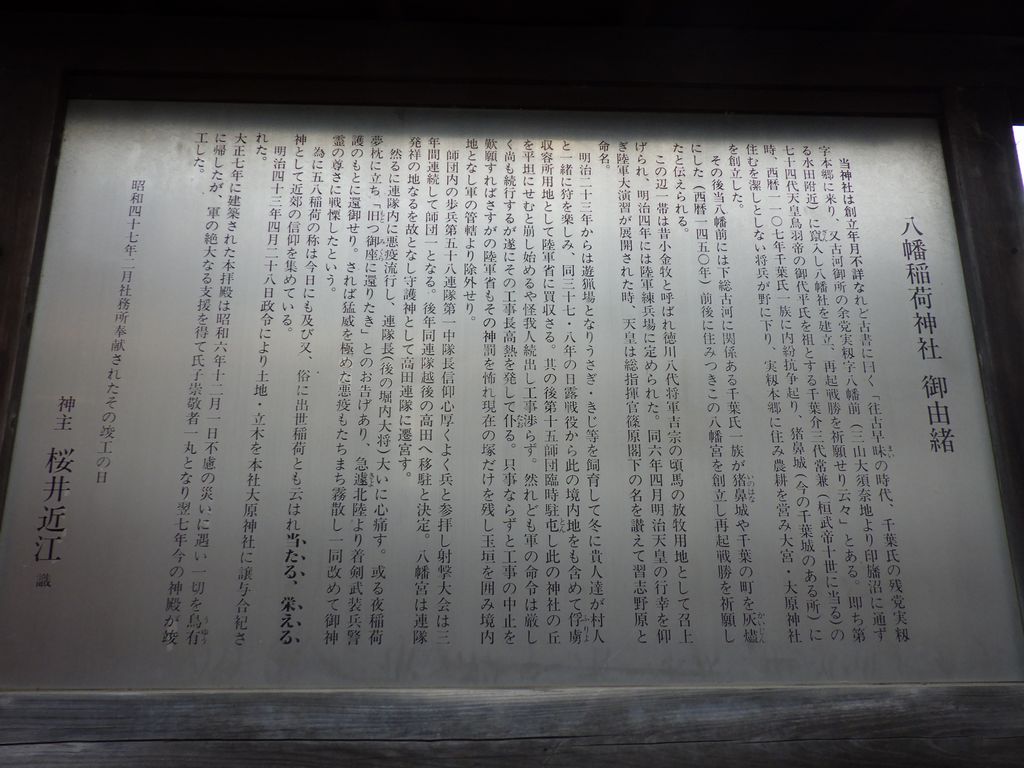 八幡稲荷神社 御由緒
当神社は創立年月不詳なれど古書に曰く「往古早味の時代、千葉氏の残党実籾
字本郷に来り、又古河御所の余党実籾字八幡前（三山大須奈地より印旛沼に通ず
る水田附近）に竄入し八幡社を建立、再起戦勝を祈願せり云々」とある。即ち第
七十四代天皇鳥羽帝の御代平氏を祖とする千葉介三代常兼（桓武帝十世に当る）の
時、西暦一一〇七年千葉氏一族に内紛抗争起り、猪鼻城（今の千葉城のある所）に
住むを潔しとしない将兵が野に下り、実籾本郷に住み農耕を営み大宮・大原神社
を創立した。
その後当八幡前には下総古河に関係ある千葉氏一族が猪鼻城や千葉の町を灰燼
にした（西暦一四五〇年）前後に住みつきこの八幡宮を創立し再起戦勝を祈願し
たと伝えられる。
この辺一帯は昔小金牧と呼ばれ徳川八代将軍吉宗の頃馬の放牧用地として召上
げられ、明治四年には陸軍練兵場に定められた。同六年四月明治天皇の行幸を仰
ぎ陸軍大演習が展開された時、天皇は総指揮官篠原閣下の名を讃えて習志野原と
命名。
明治二十三年からは遊猟場となりうさぎ・きじ等を飼育して冬に貴人達が村人
と一緒に狩を楽しみ、同三十七・八年の日露戦役から此の境内地をも含めて俘虜
収容所用地として陸軍省に買収さる。其の後第十五師団臨時駐屯し此の神社の丘
を平坦にせむと崩し始めるや怪我人続出し工事捗らず。然れども軍の命令は厳し
く尚も続行するが遂にその工事長高熱を発して仆る。只事ならずと工事の中止を
歎願すればさすがの陸軍省もその神罰を怖れ現在の塚だけを残し玉垣を囲み境内
地となし軍の管轄より除外せり。
師団内の歩兵第五十八連隊第一中隊長信仰心厚くよく兵と参拝し射撃大会は三
年間連続して師団一となる。後年同連隊越後の高田へ移駐と決定。八幡宮は連隊
発祥の地なるを故となし守護神として高田連隊に遷宮す。
然るに連隊内に悪疫流行し、連隊長（後の堀内大将）大いに心痛す。或る夜稲荷
夢枕に立ち「旧つ御座に還りたき」とのお告げあり、急遽北陸より着剣武装兵警
護のもとに還御せり。されば猛威を極めた悪疫もたちまち霧散し一同改めて御神
霊の尊さに戦慄したという。
為に五八稲荷の称は今日にも及び又、俗に出世稲荷とも云はれ当たる、栄える、
神として近郊の信仰を集めている。
明治四十三年四月二十八日政令により土地・立木を本社大原神社に譲与合祀さ
れた。
大正七年に建築された本拝殿は昭和六年十二月一日不慮の災いに遇い一切を烏有
に帰したが、軍の絶大なる支援を得て氏子崇敬者一丸となり翌七年今の神殿が竣
工した。
昭和四十七年二月社務所奉献されたその竣工の日
神主 桜井近江 識